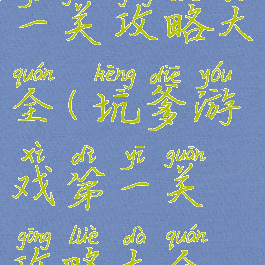 一关攻略大
quán kēng diē yóu
全(坑爹游
xì dì yī guān
戏第一关
gōng lüè dà quán
攻略大全